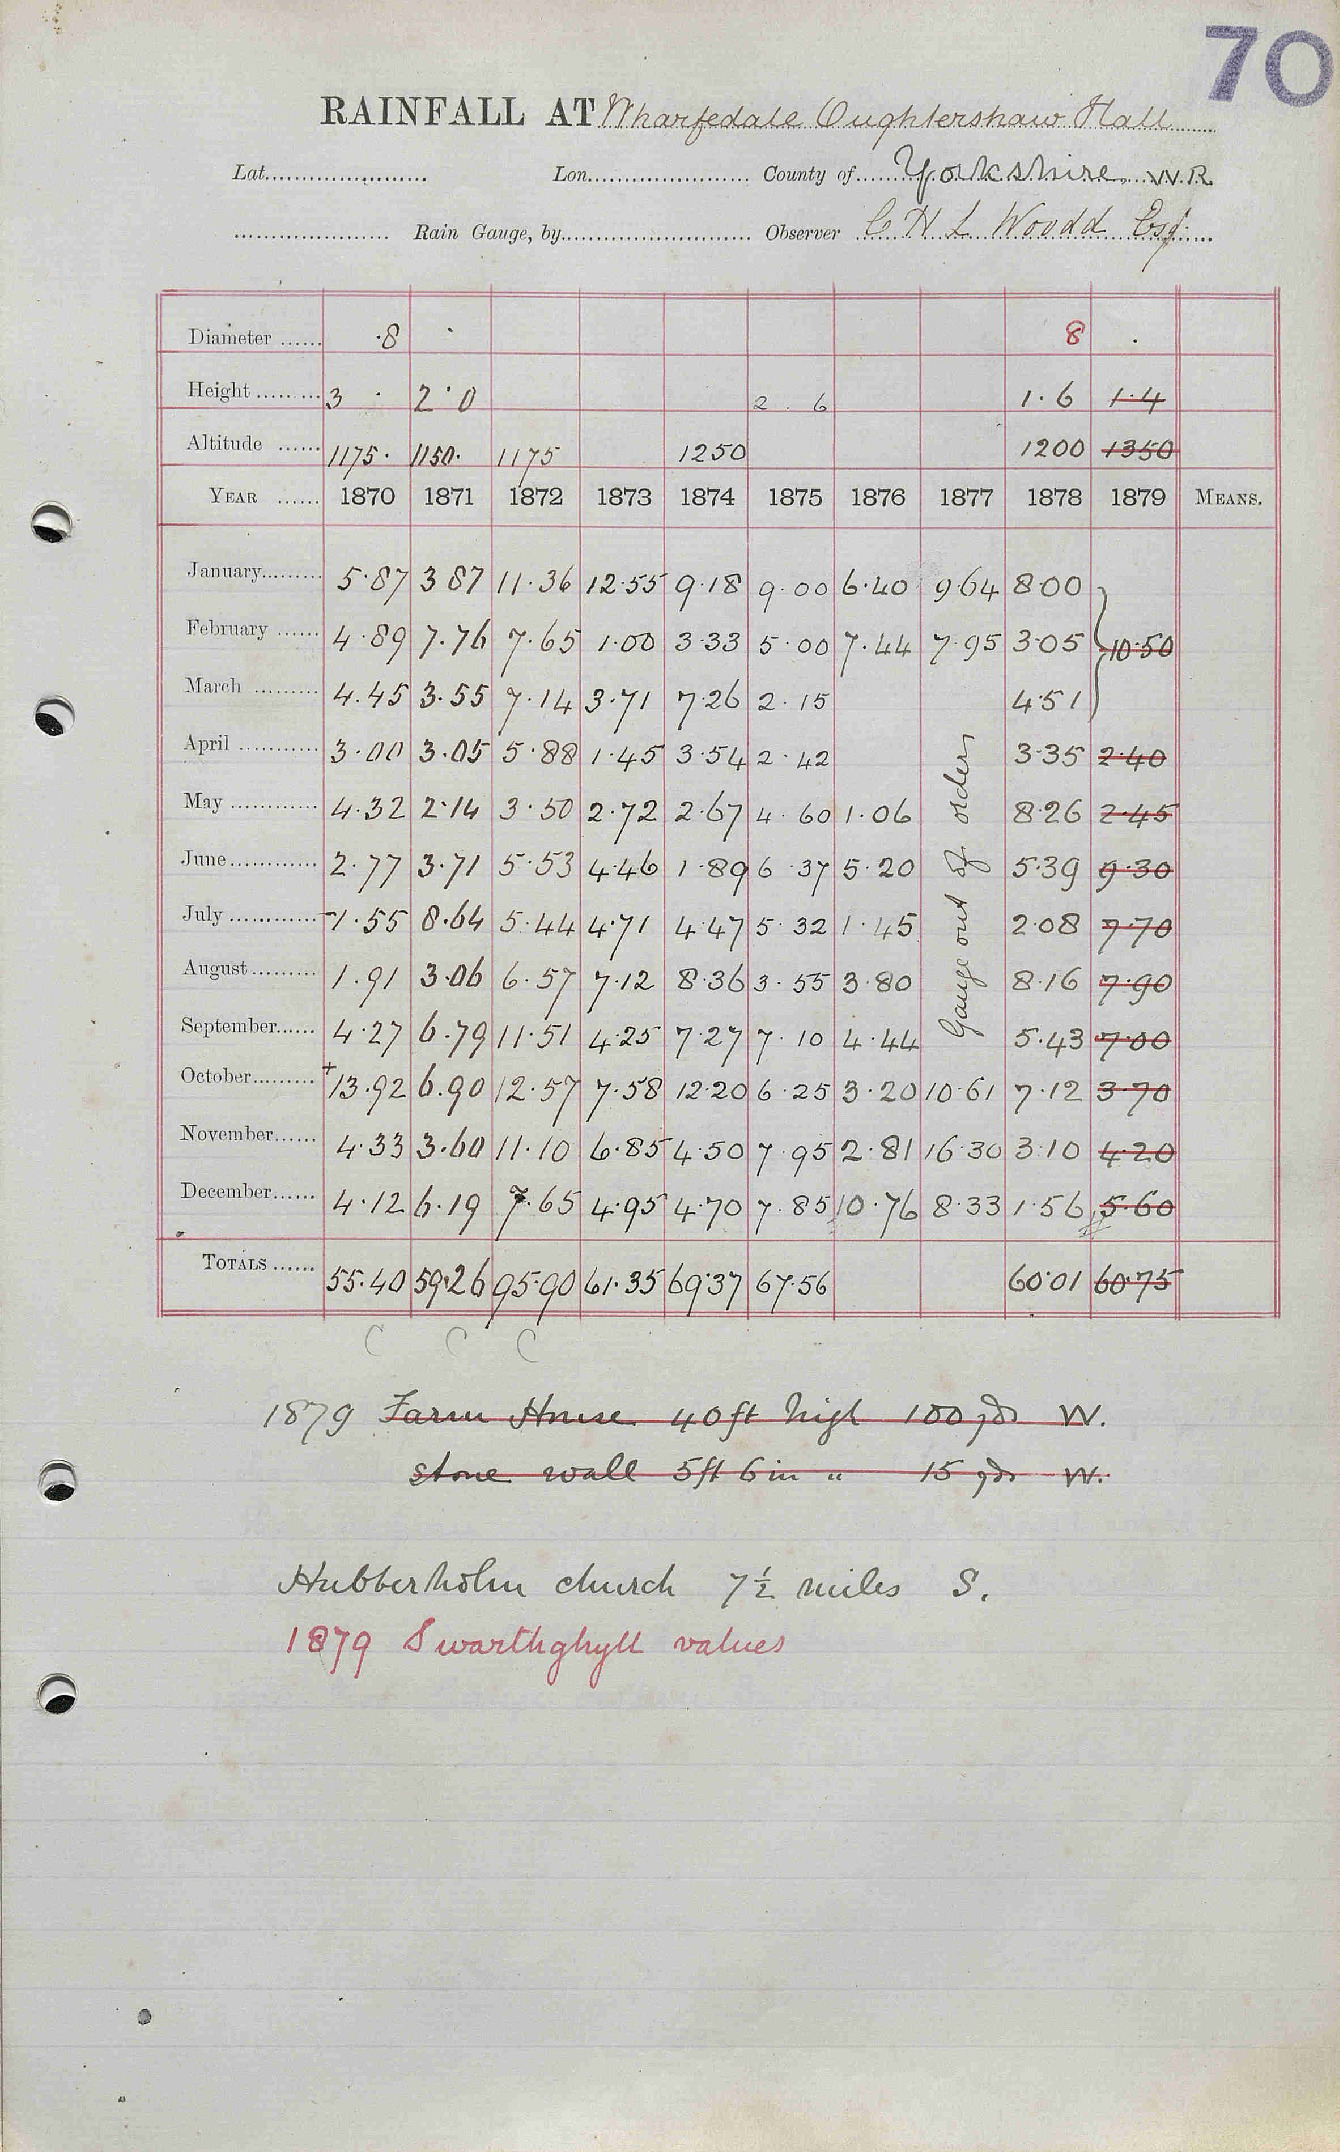 70
RAINFALL AT Wharfedale Oughtershaw Hall
Lat. Lon. County of Yorkshire. W.R.
Rain Gauge, by Observer C H L Woodd Esq.
Diameter ·8 8
Height 3 · 2·0 2 . 6 1·6 1·4
Altitude 1175· 1150· 1175 1250 1200 1350
YEAR 1870 1871 1872 1873 1874 1875 1876 1877 1878 1879 MEANS.
January 5·87 3 87 11·36 12·55 9·18 9·00 6·40 9 64 8·00
February 4·89 7·76 7·65 1·00 3·33 5·00 7·44 7·95 3·05 10·50
March 4·45 3·55 7·14 3·71 7·26 2·15 4·51
April 3·00 3·05 5·88 1·45 3·54 2·42 3·35 2·40
May 4·32 2·14 3·50 2·72 2·67 4·60 1·06 8·26 2·45
June 2·77 3·71 5·53 4·46 1·89 6·37 5·20 5·39 9·30
July -1·55 8·64 5·44 4·71 4·47 5·32 1·45 2·08 7·70
August 1·91 3·06 6·57 7·12 8·36 3·55 3·80 8·16 7·90
September 4·27 6·79 11·51 4·25 7·27 7·10 4·44 5·43 7·00
Gauge out of order
October +13·92 6·90 12·57 7·58 12·20 6·25 3·20 10·61 7·12 3·70
November 4·33 3·60 11·10 6·85 4·50 7·95 2·81 16·30 3·10 4·20
December 4·12 6·19 7·65 4·95 4·70 7·85 10·76 8·33 1·56 5·60
TOTALS 55·40 59·26 95·90 61·35 69·37 67·56 60·01 60·75
C C C
1879 Farm House 40ft high 100 yds W.
stone wall 5ft 6in " 15 yds W.
Hubberholm church 7½ miles S.
1879 Swarthghyll values